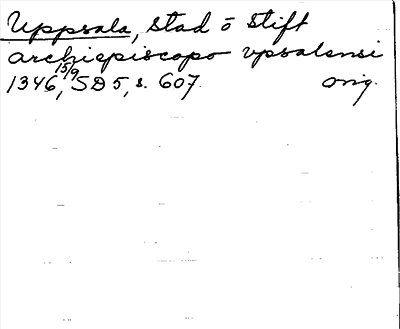 Uppsala, stad o stift
archiepiscopo vpsalensi
1346 15/9, SD 5, s. 607. orig.